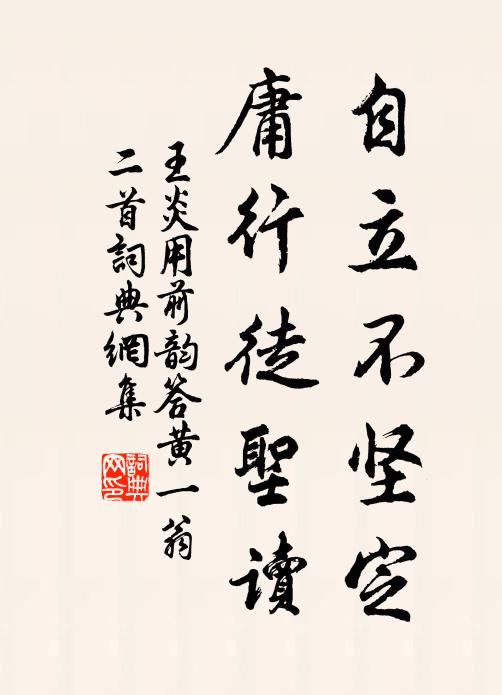 自立不坚定
庸行徒聖讀
王炎用前韵答黄一翁
二首詞典網集
詞典
网印